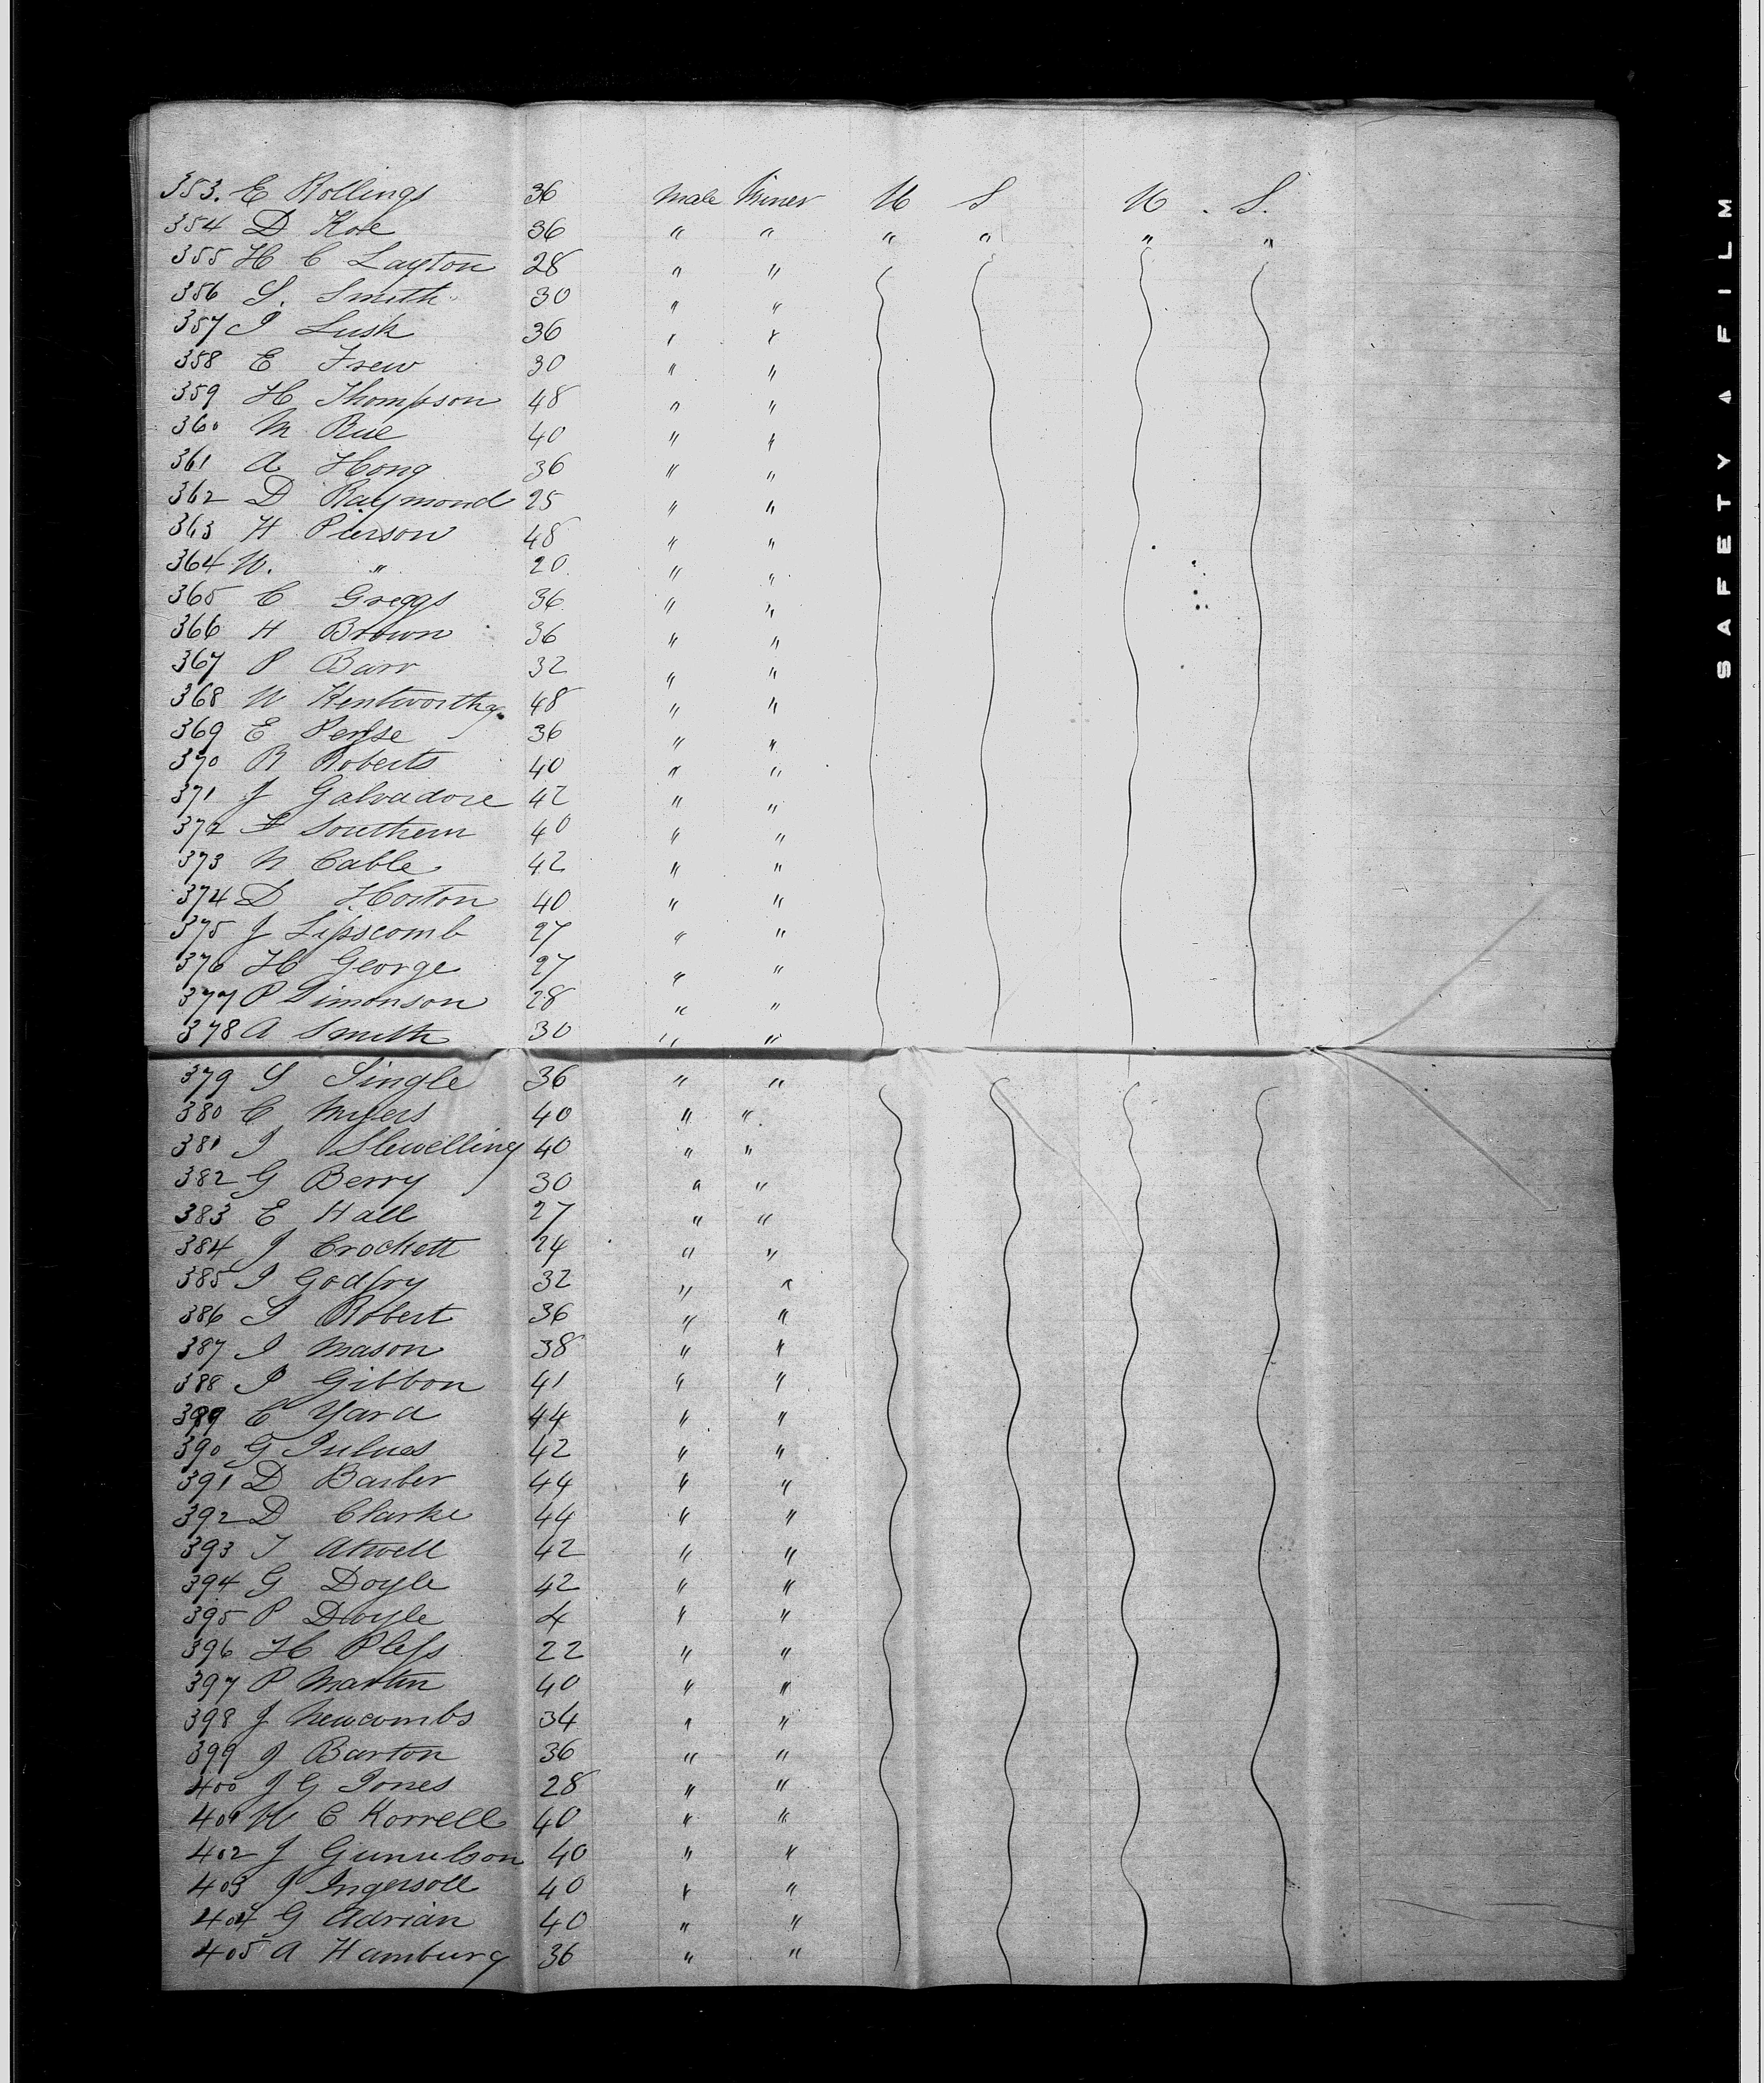 353. E Rollings 36 Male Miner U S U. S.
354 D Kose 36 " " " " " "
355 H C Layton 28 " "
356 S. Smith 30 " "
357 J Lusk 36 " "
358 E Frew 30 " "
359 H Thompson 48 " "
360 M Rue 40 " "
361 A Hong 36 " "
362 D Raymond 25 " "
363 H Pierson 48 " "
364 W. " 20 " "
365 C Greggs 36 " "
366 H Brown 36 " "
367 P Barr 32 " "
368 W Kentworthy 48 " "
369 E Perse 36 " "
370 R Roberts 40 " "
371 J Galvadore 42 " "
372 F Southern 40 " "
373 N Cable 42 " "
374 D Horton 40 " "
375 J Lipscomb 27 " "
376 H George 27 " "
377 P Simonson 28 " "
378 A Smith 30 " "
379 S Single 36 " "
380 C Myers 40 " "
381 J Slewelling 40 " "
382 G Berry 30 " "
383 E Hall 27 " "
384 J Crockett 24 " "
385 J Godfry 32 " "
386 S Robert 36 " "
387 J Mason 38 " "
388 P Gibbon 41 " "
389 C Yard 44 " "
390 G 42 " "
391 D Barber 44 " "
392 D Clarke 44 " "
393 T Atwell 42 " "
394 G Doyle 42 " "
395 P Doyle 4 " "
396 H Pless 22 " "
397 P Martin 40 " "
398 J Newcombs 34 " "
399 J Barton 36 " "
400 J G Jones 28 " "
401 W C Korrell 40 " "
402 J Gunulson 40 " "
403 J Ingersoll 40 " "
404 G Adrian 40 " "
405 A Hamburg 36 " "
SAFETY FILM